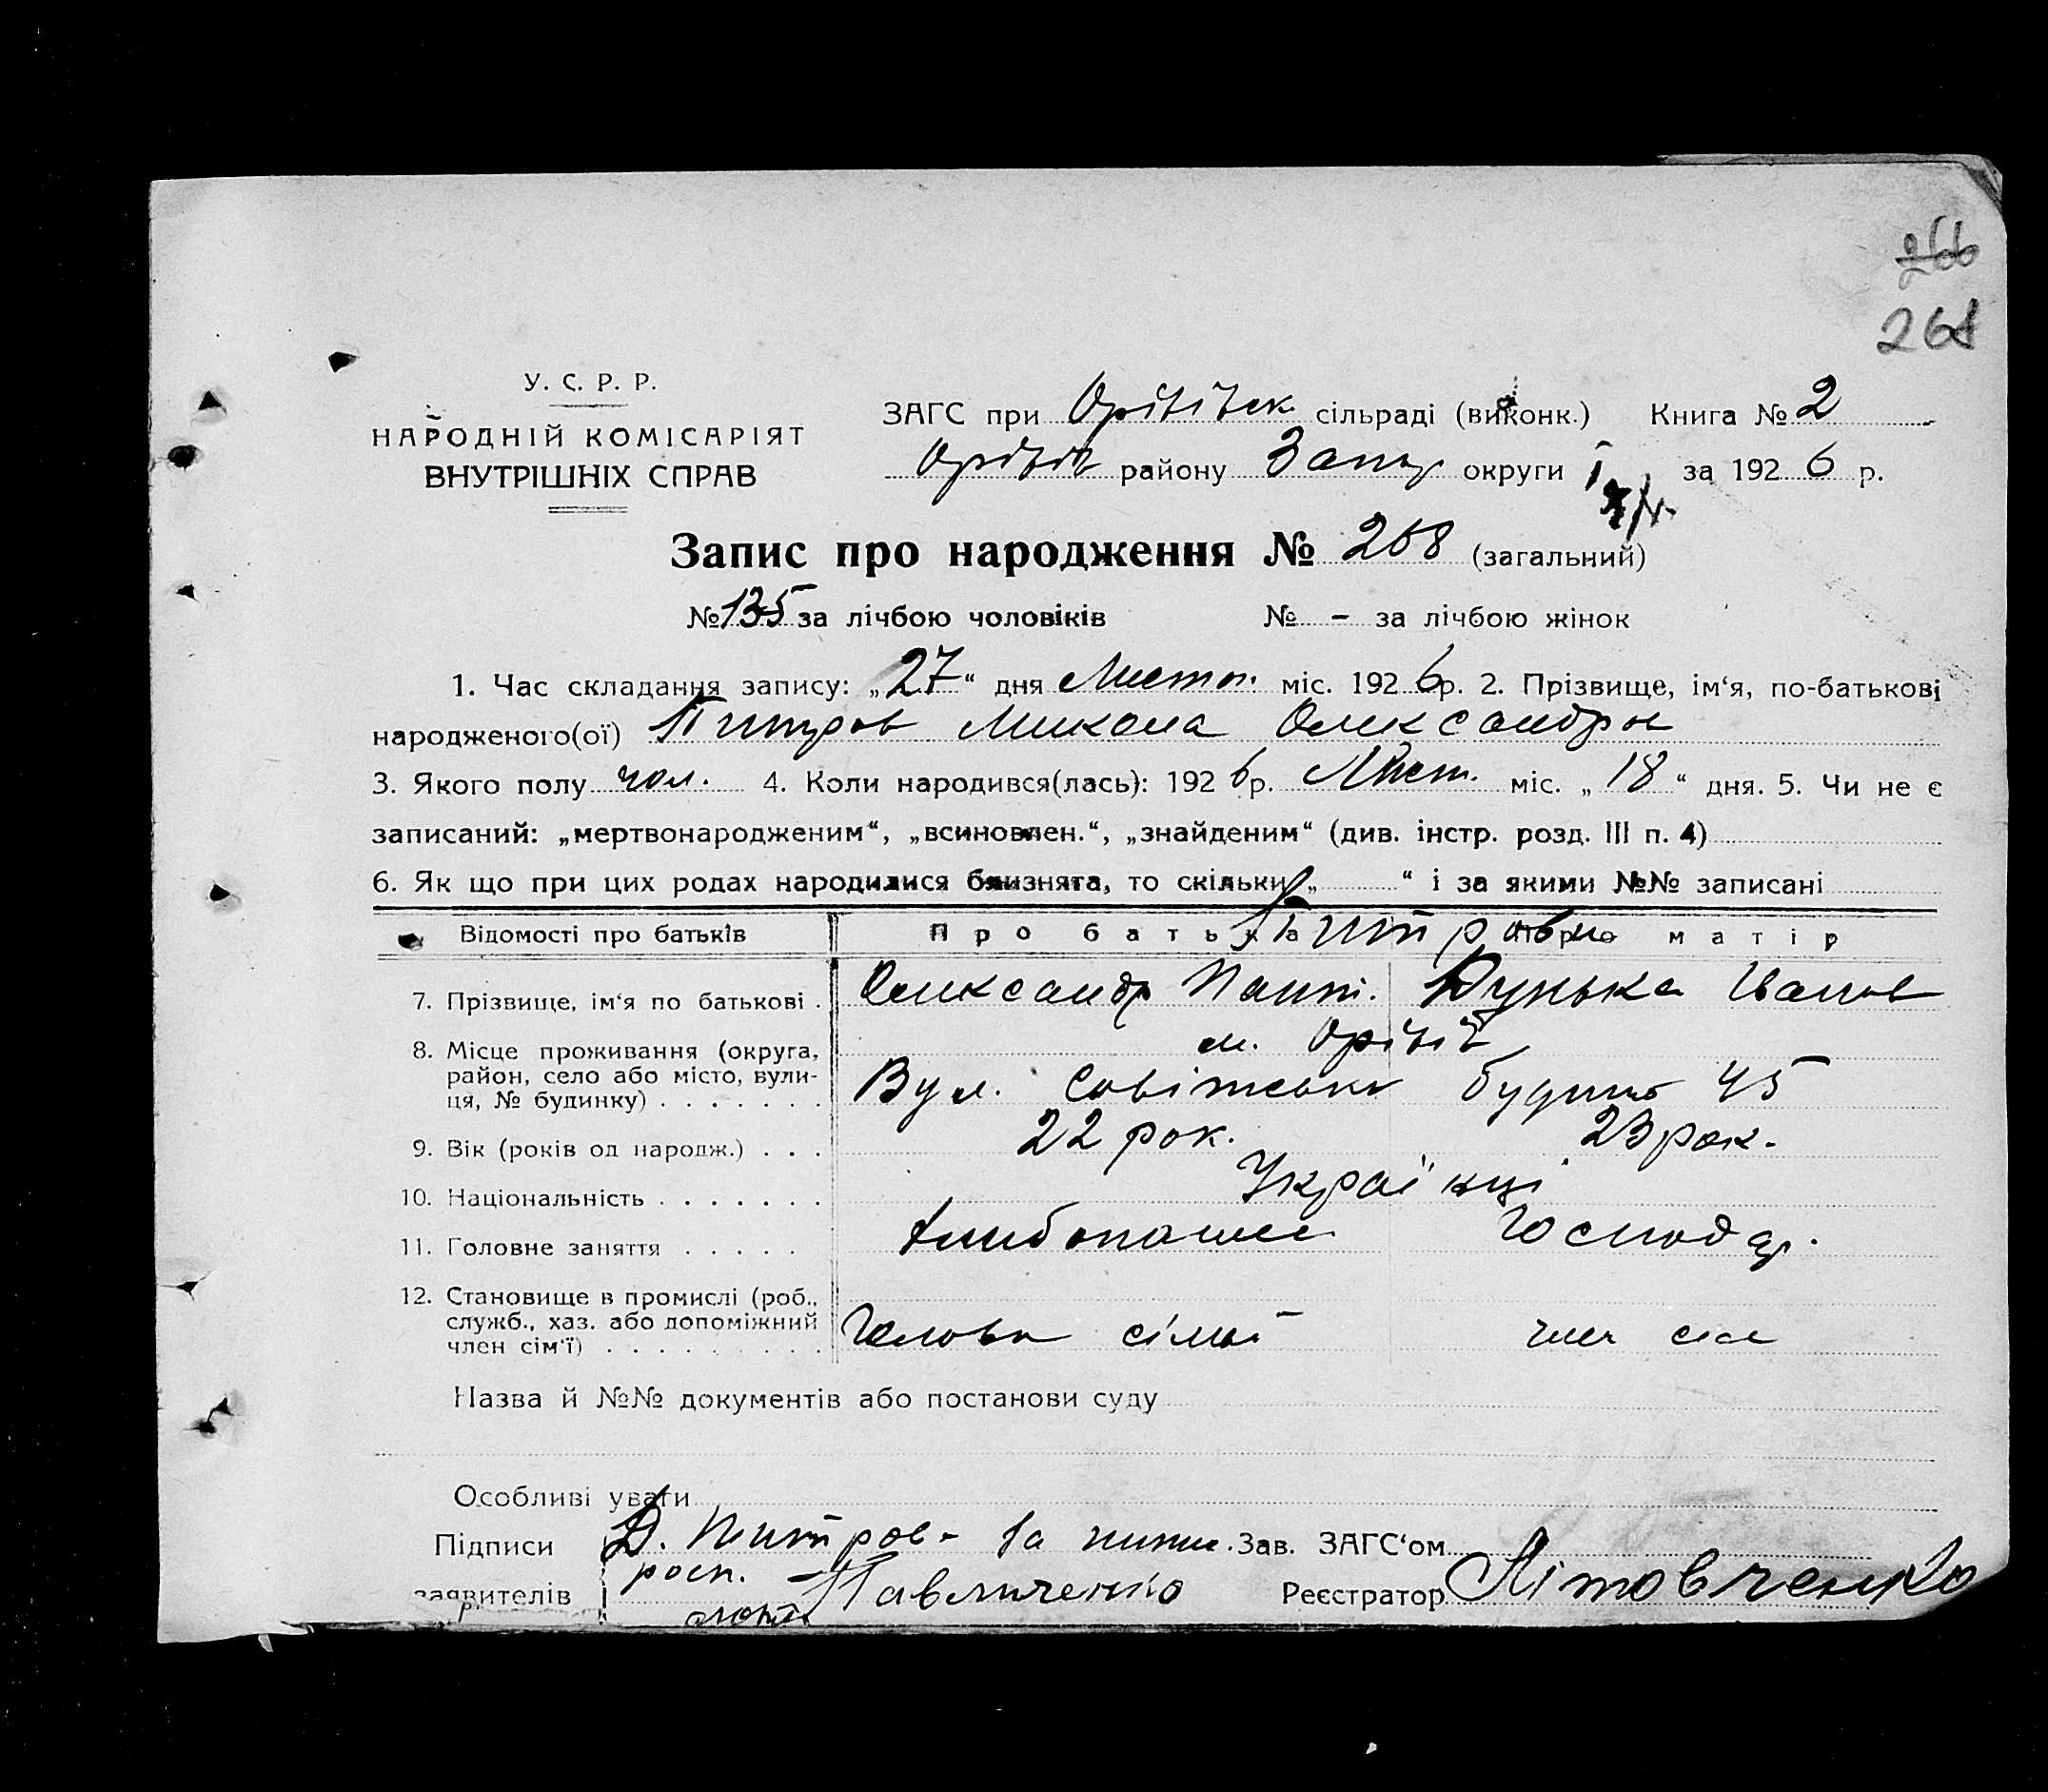 266
268
У. С. Р. Р.
НАРОДНІЙ КОМІСАРІЯТ
ВНУТРІШНІХ СПРАВ
ЗАГС при Орівівськ сільраді (виконк.) Книга № 2
Орівів району Запор округи за 1926 р.
Запис про народження № 268 (загальний)
№ 135 за лічбою чоловіків № - за лічбою жінок
1. Час складання запису: „27“ дня Листоп. міс. 1926 р. 2. Прізвище, ім‘я, по-батькові
народженого(ої) Питров Микола Олександров
3. Якого полу чол. 4. Коли народився(лась): 1926 р. Лист. міс. „18“ дня. 5. Чи не є
записаний: „мертвонародженим“, „всиновлен.“, „знайденим“ (див. інстр. розд. III п. 4)
6. Як що при цих родах народилися близнята, то скільки „ “ і за якими №№ записані
Відомості про батьків Про батька Про матір
Питрови
7. Прізвище, ім‘я по батькові . Олександр Дунька Іванов
8. Місце проживання (округа, м. Орівів
район, село або місто, вули-
ця, № будинку) . . . . . . . Вул. Совітська будинок 45
9. Вік (років од народж.) . . . 22 рок. 23 рок.
10. Національність . . . . . . . Українці
11. Головне заняття . . . . . Господар.
12. Становище в промислі (роб.,
служб., хаз. або допоміжний
член сім‘ї) . . . . . . . . . Голова сімьї член
Назва й №№ документів або постанови суду
Особливі уваги
Підписи Д. Питров- за Зав. ЗАГС‘ом
росп.
заявителів Павличенко Реєстратор Літовченко